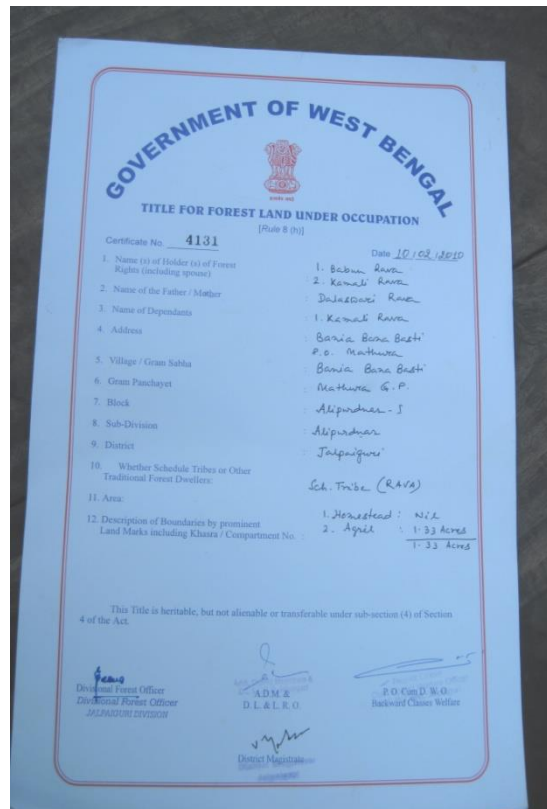 GOVERNMENT OF WEST BENGAL
TITLE FOR FOREST LAND UNDER OCCUPATION
[Rule 8 (h)]
Certificate No. 4131
Date 10/02/2010
1. Name (s) of Holder (s) of Forest Rights (including spouse) : 1. Babun Rava
2. Kamali Rava
2. Name of the Father / Mother : Rava
3. Name of Dependants : 1. Kamali Rava
4. Address : Bania Basa Basti
P.O. Mathura
5. Village / Gram Sabha : Bania Basa Basti
6. Gram Panchayet : Mathura G.P.
7. Block : Alipurduar - I
8. Sub-Division : Alipurduar
9. District : Jalpaiguri
10. Whether Schedule Tribes or Other Traditional Forest Dwellers: Sch. Tribe (RAVA)
11. Area: 1. Homestead : Nil
12. Description of Boundaries by prominent Land Marks including Khasra / Compartment No. : 2. Agril : 1.33 Acres
1.33 Acres
This Title is heritable, but not alienable or transferable under sub-section (4) of Section
4 of the Act.
Divisional Forest Officer
Divisional Forest Officer
JALPAIGURI DIVISION
A.D.M &
D. L. & L. R. O.
P. O. Cum D. W. O.
Backward Classes Welfare
District Magistrate